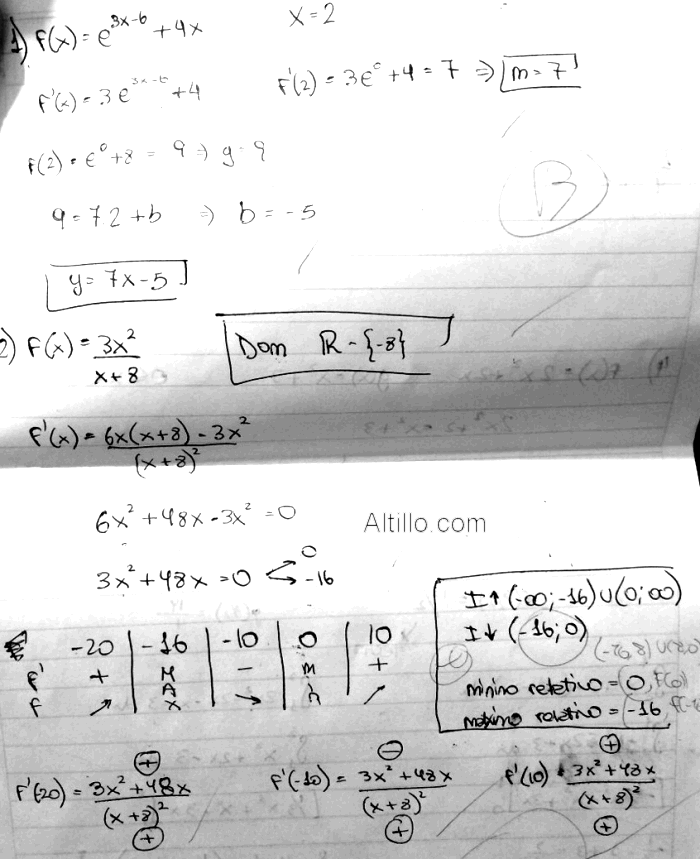 1) f(x) = e^(3x-6) + 4x    x = 2
f'(x) = 3e^(3x-6) + 4    f'(2) = 3e^0 + 4 = 7 ⇒ m = 7
f(2) = e^0 + 8 = 9 ⇒ y = 9
B
9 = 7.2 + b ⇒ b = -5
y = 7x - 5
2) f(x) = 3x²/(x+8)    Dom ℝ - {-8}
f'(x) = (6x(x+8) - 3x²)/(x+8)²
6x² + 48x - 3x² = 0
Altillo.com
3x² + 48x = 0 < 0
-16
-20 | -16 | -10 | 0 | 10
f' + | M | - | m | +
f ↗ | A X | ↘ | | ↗
I↑ (-∞; -16) ∪ (0; ∞)
I↓ (-16; 0)
mínimo relativo = 0, f(0)
máximo relativo = -16
⊕    ⊖    ⊕
f'(20) = (3x² + 48x)/(x+8)²    f'(-10) = (3x² + 48x)/(x+8)²    f'(10) = (3x² + 48x)/(x+8)²
⊕    ⊕    ⊕